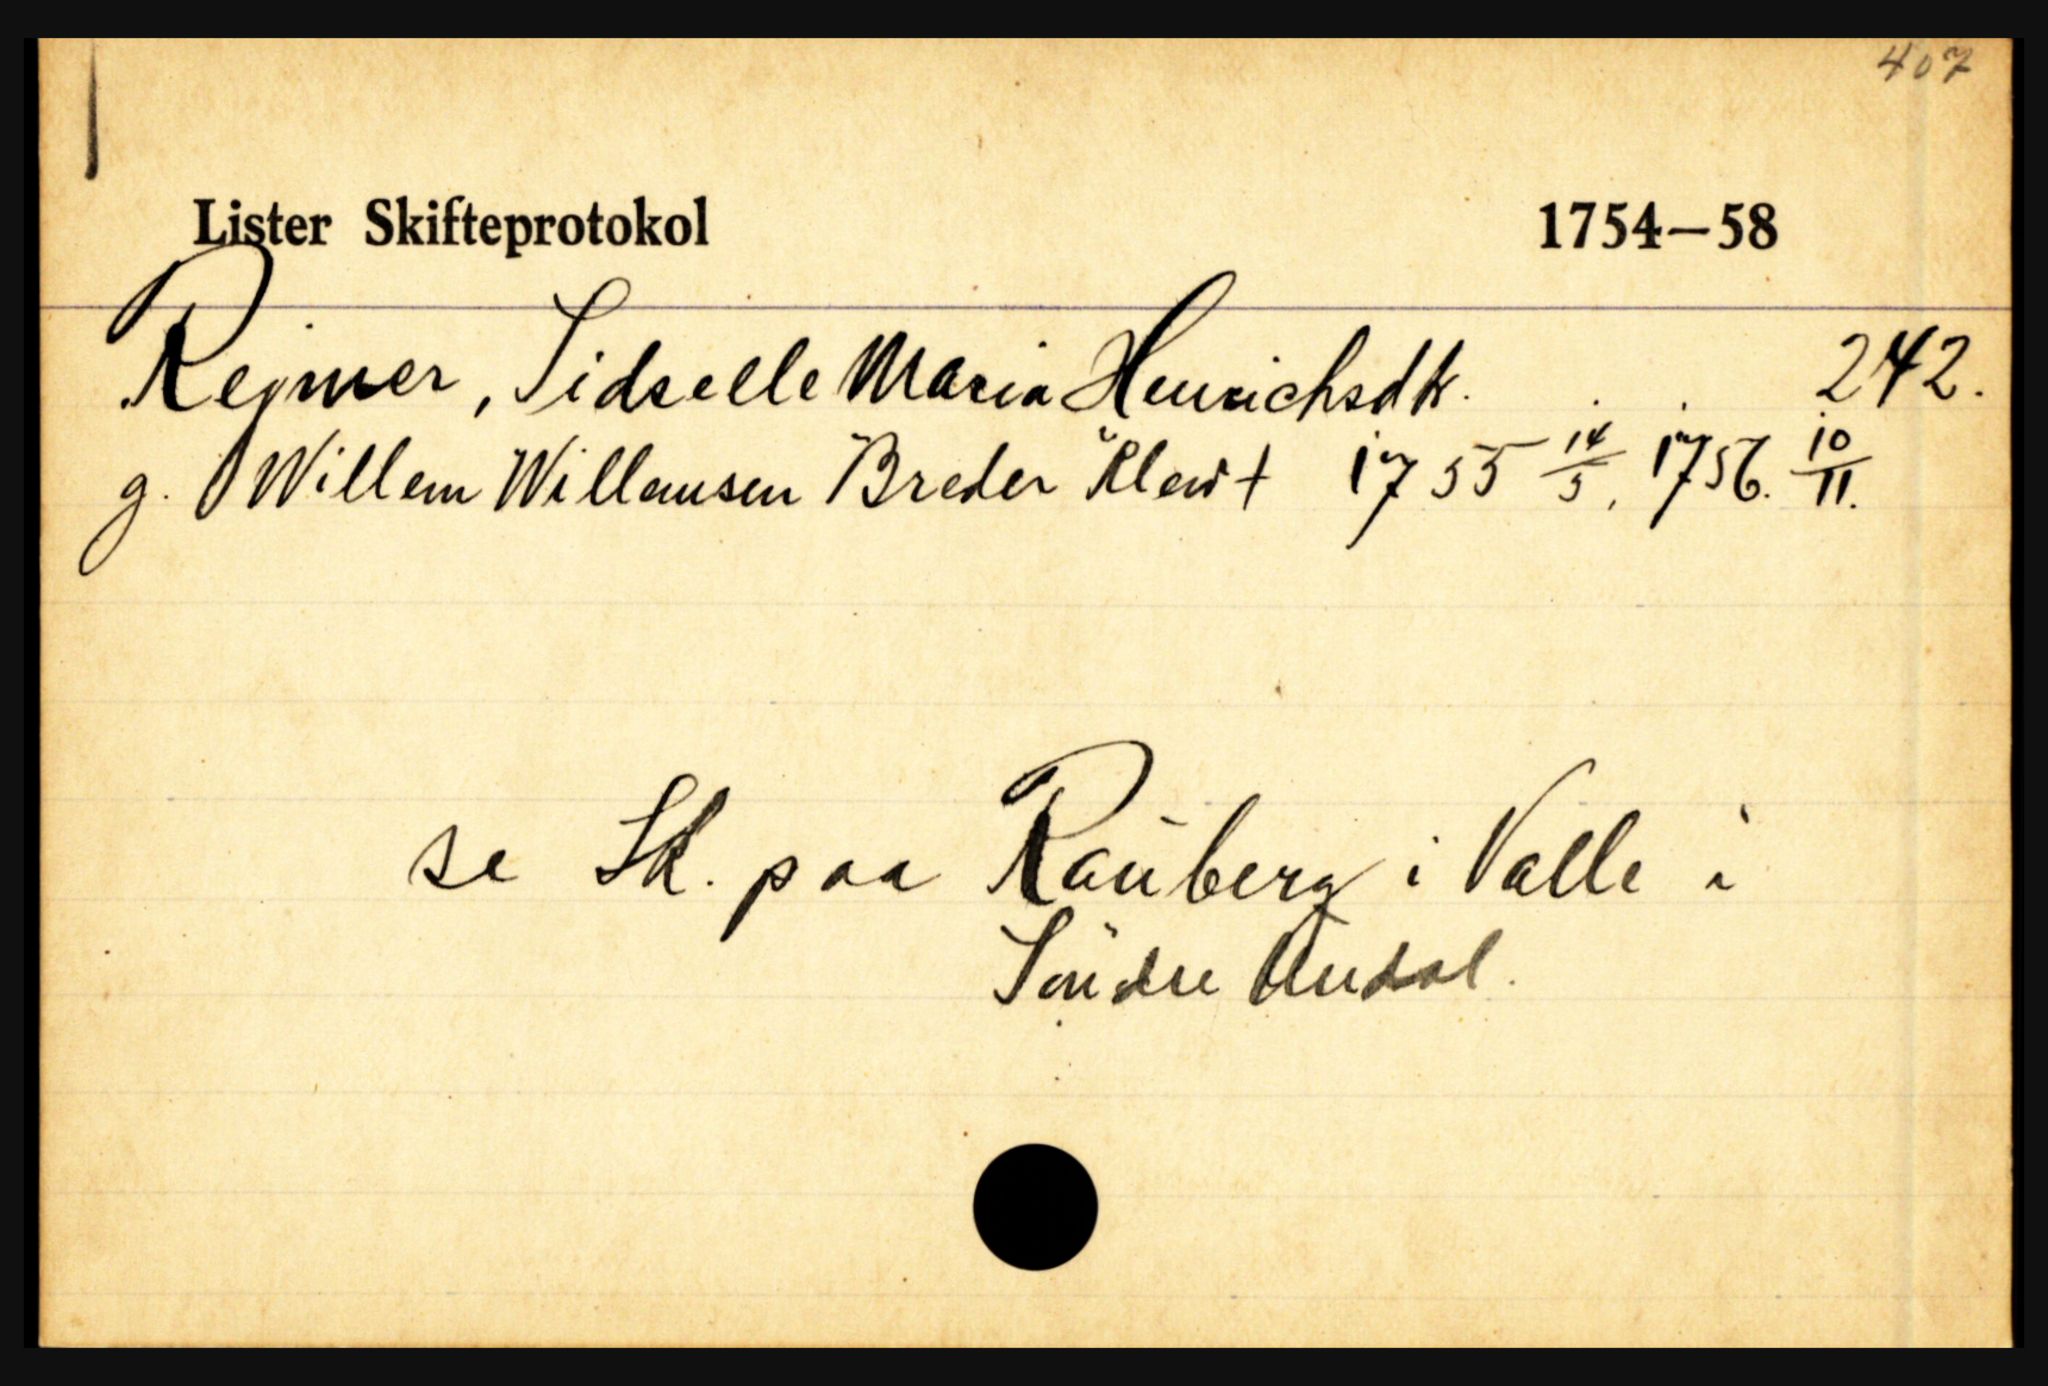 407
Lister Skifteprotokol 1754—58
Rejmer, Sidselle Maria Henrichsdtr. 242.
g. Willem Willemsen Breder 1755 14/5, 1756. 10/11.
se Sk. paa Rauberg i Valle i
Söndre Undal.